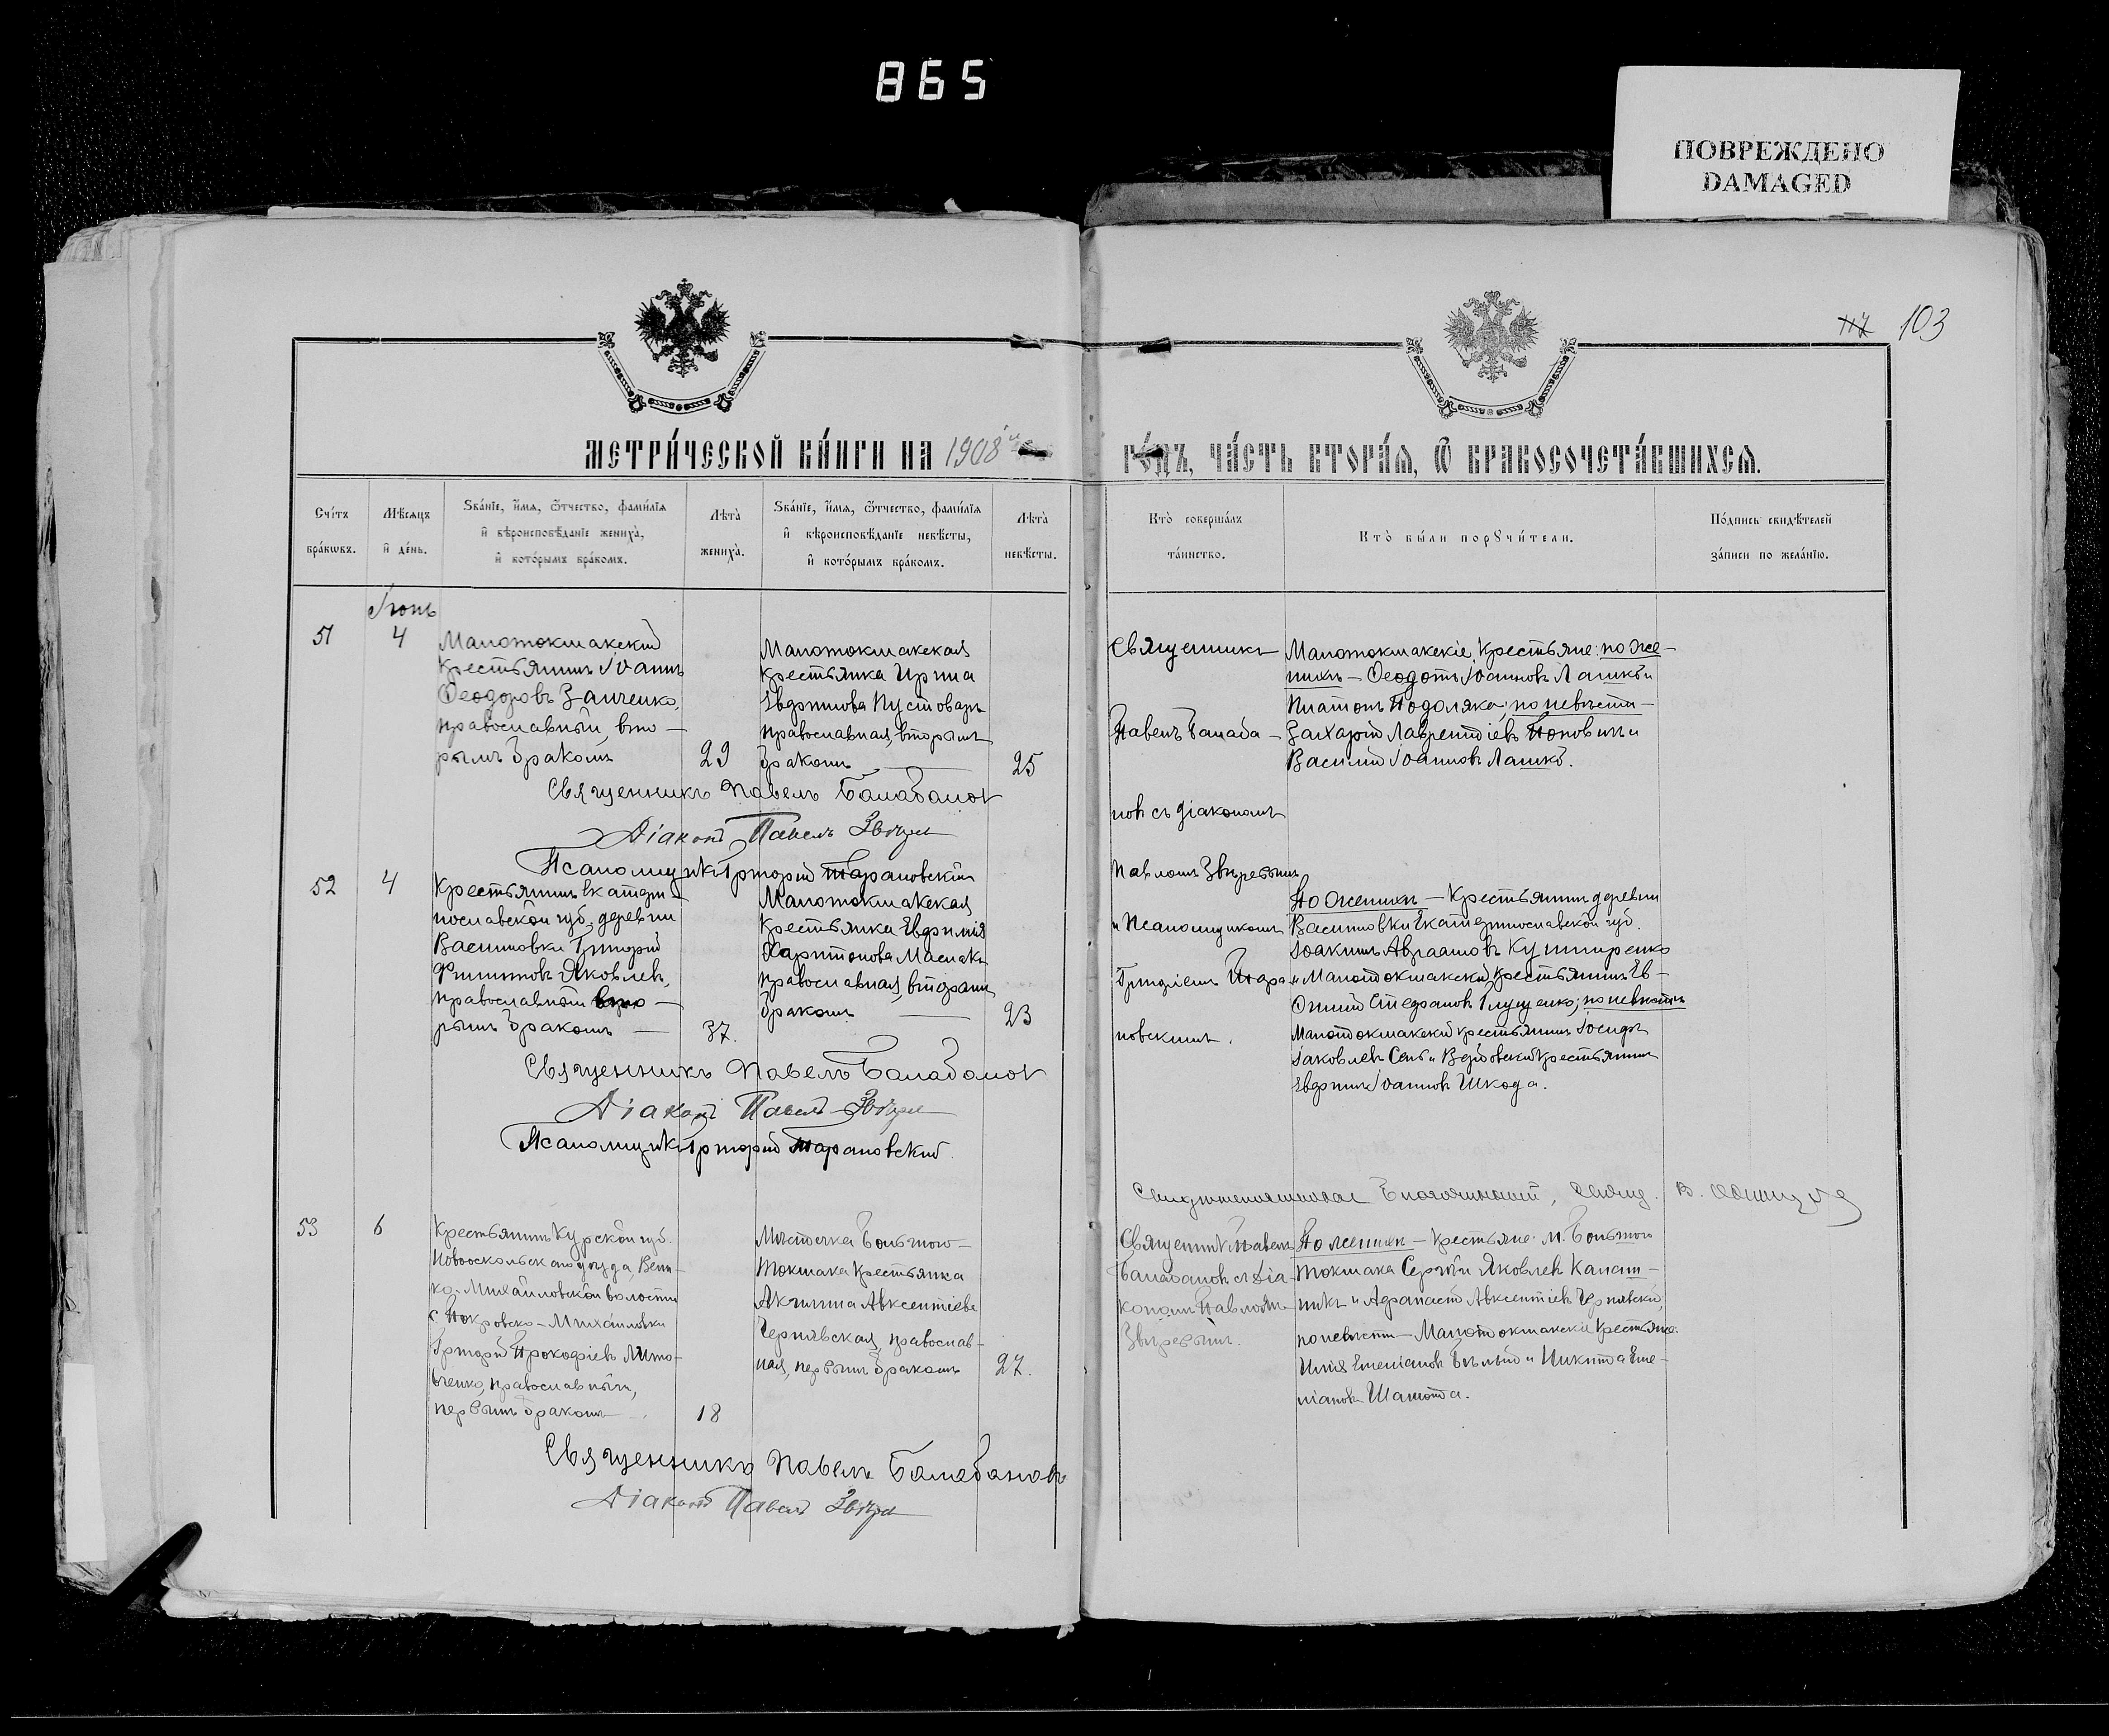 865
ПОВРЕЖДЕНО
DAMAGED
117 103
МЕТРИ́ЧЕСКОЙ КНИ́ГИ НА 1908й
ГО́ДЪ, ЧА́СТЬ ВТОРА́Я, Ѿ БРАКОСОЧЕТА́ВШИХСЯ.
Сче́тъ бра́кѡвъ.
Мѣ́сяцъ и҆ де́нь.
Ѕва́нїе, и҆́мя, ѻ҆́тчество, фами́лїя
и҆ вѣроисповѣ́данїе жениха̀,
и҆ кото́рымъ бра́комъ.
Лѣта̀ жениха̀.
Ѕва́нїе, и҆́мя, ѻ҆́тчество, фами́лїя
и҆ вѣроисповѣ́данїе невѣ́сты,
и҆ кото́рымъ бра́комъ.
Лѣта̀ невѣ́сты.
Кто̀ соверша́лъ
та́инство.
Кто̀ бы́ли порꙋчи́тели.
По́дпись свидѣ́телей
за́писи по жела́нїю.
Іюнь
51
4
Малотокмакскій
крестьянинъ Іоаннъ
Ѳеодоровъ Заиченко,
православный, вто-
рымъ бракомъ
29
Малотокмакская
крестьянка Ирина
Евфимова Пустоваръ
православная, вторымъ
бракомъ
25
Священникъ
Павелъ Балаба-
новъ съ діакономъ
Павломъ Звѣревымъ
и Псаломщикомъ
Григоріемъ Тара-
новскимъ.
Малотокмакскіе крестьяне: по же-
нихѣ - Ѳеодотъ Іоанновъ Лашко и
Платонъ Подоляка; по невѣстѣ -
Захарій Лаврентіевъ Поповикъ и
Василій Іоанновъ Лашко.
Священникъ Павелъ Балабановъ
Діаконъ Павелъ Звѣрев
Псаломщикъ Григорій Тарановскій
52
4
Крестьянинъ Екатери-
нославской губ., деревни
Васиновки Григорій
Филиповъ Яковлевъ,
православный вто-
рымъ бракомъ
37.
Малотокмакская
крестьянка Евфимія
Харитонова Маслакъ
православная, вторымъ
бракомъ
23
По женихѣ - крестьянинъ деревни
Васиновки Екатеринославской губ.
Іоакимъ Авраамовъ Кушниренко
и Малотокмакскій крестьянинъ Ев-
Стефановъ Глущенко; по невѣстѣ
Малотокмакскій крестьянинъ Іосифъ
Іаковлевъ и крестьянинъ
Евфимъ Іоанновъ Шкода.
Священникъ Павелъ Балабановъ
Діаконъ Павелъ Звѣрев
Псаломщикъ Григорій Тарановскій.
53
6
Крестьянинъ Курской губ.
Новооскольскаго уѣзда, Вели-
ко-Михайловской волости
с. Покровско-Михаиловки
Григорій Прокофіевъ Лито-
вченко, православный,
первымъ бракомъ
18
Мѣстечка Большого-
Токмака крестьянка
Акилина Авксентіева
Чернявская, православ-
ная, первымъ бракомъ
27.
Священникъ Павелъ
Балабановъ съ діа-
кономъ Павломъ
Звѣревымъ.
По женихѣ - крестьяне м. Большого
Токмака Сергѣй Яковлевъ Калаш-
никъ и Афанасій Авксентіевъ Чернявскій,
по невѣстѣ - Малотокмакскіе крестьяне:
Илія Емеліановъ Бѣлый и Никита Еме-
ліановъ Шамота.
Священникъ Павелъ Балабановъ
Діаконъ Павелъ Звѣрев